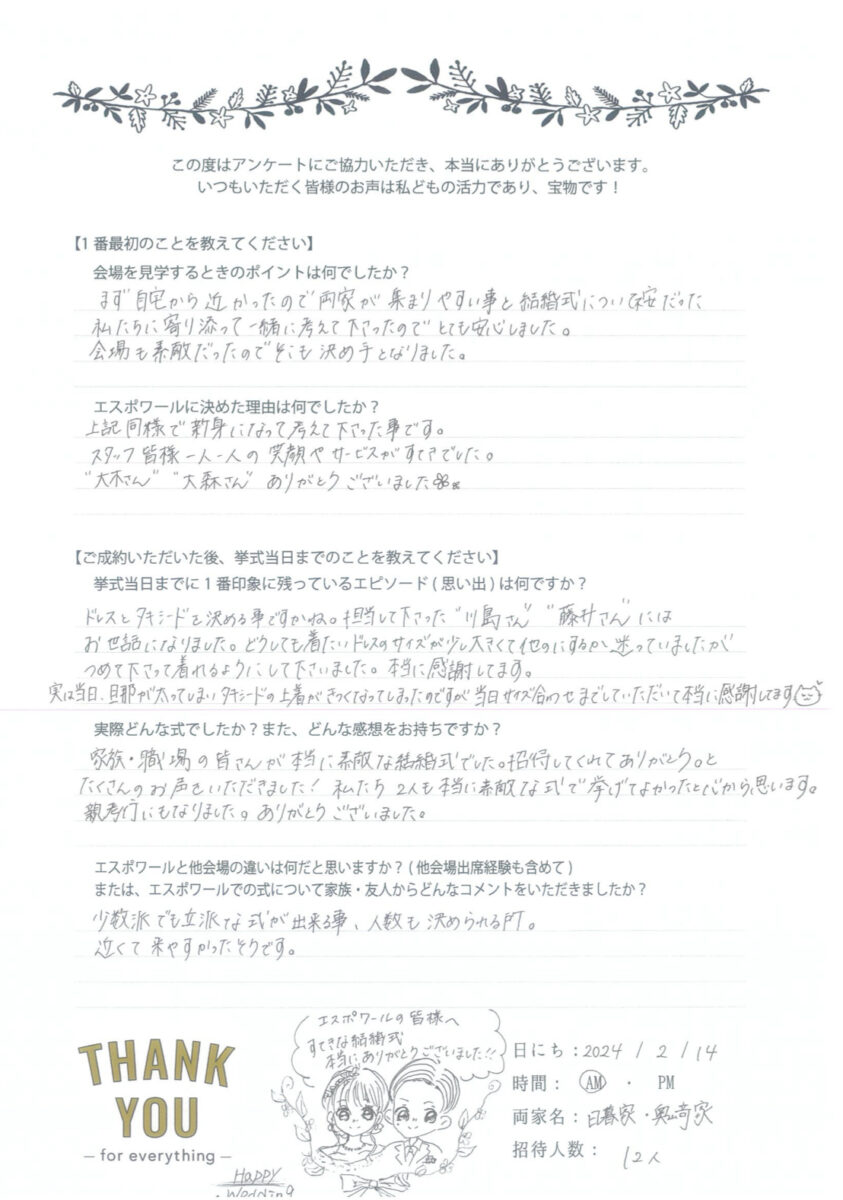 この度はアンケートにご協力いただき、本当にありがとうございます。
いつもいただく皆様のお声は私どもの活力であり、宝物です！
【1番最初のことを教えてください】
会場を見学するときのポイントは何でしたか？
まず自宅から近かったので両家が集まりやすい事と結婚式について不安だった
私たちに寄り添って一緒に考えて下さったのでとても安心しました。
会場も素敵だったのでそこも決め手となりました。
エスポワールに決めた理由は何でしたか？
上記同様で親身になって考えて下さった事です。
スタッフ皆様一人一人の笑顔やサービスがすてきでした。
"大木さん" "大森さん" ありがとうございました
【ご成約いただいた後、挙式当日までのことを教えてください】
挙式当日までに1番印象に残っているエピソード(思い出)は何ですか？
ドレスとタキシードを決める事ですかね。担当して下さった"川島さん" "藤井さん"には
お世話になりました。どうしても着たいドレスのサイズが少し大きくて他のにするか迷っていましたが
つめて下さって着れるようにして下さいました。本当に感謝してます。
実は当日、旦那が太ってしまいタキシードの上着がきつくなってしまったのですが当日サイズ合わせまでしていただいて本当に感謝してます
実際どんな式でしたか？また、どんな感想をお持ちですか？
家族・職場の皆さんが本当に素敵な結婚式でした。招待してくれてありがとう。と
たくさんのお声をいただきました！私たち2人も本当に素敵な式で挙げてよかったと心から思います。
親孝行にもなりました。ありがとうございました。
エスポワールと他会場の違いは何だと思いますか？(他会場出席経験も含めて)
または、エスポワールでの式について家族・友人からどんなコメントをいただきましたか？
少数派でも立派な式が出来る事、人数も決められる所。
近くて来やすかったそうです。
エスポワールの皆様へ
すてきな結婚式
本当にありがとうございました!!
THANK
YOU
– for everything –
Happy
Wedding
日にち：2024 / 2 / 14
時間： AM ・ PM
両家名：日暮家・奥﨑家
招待人数： 12人